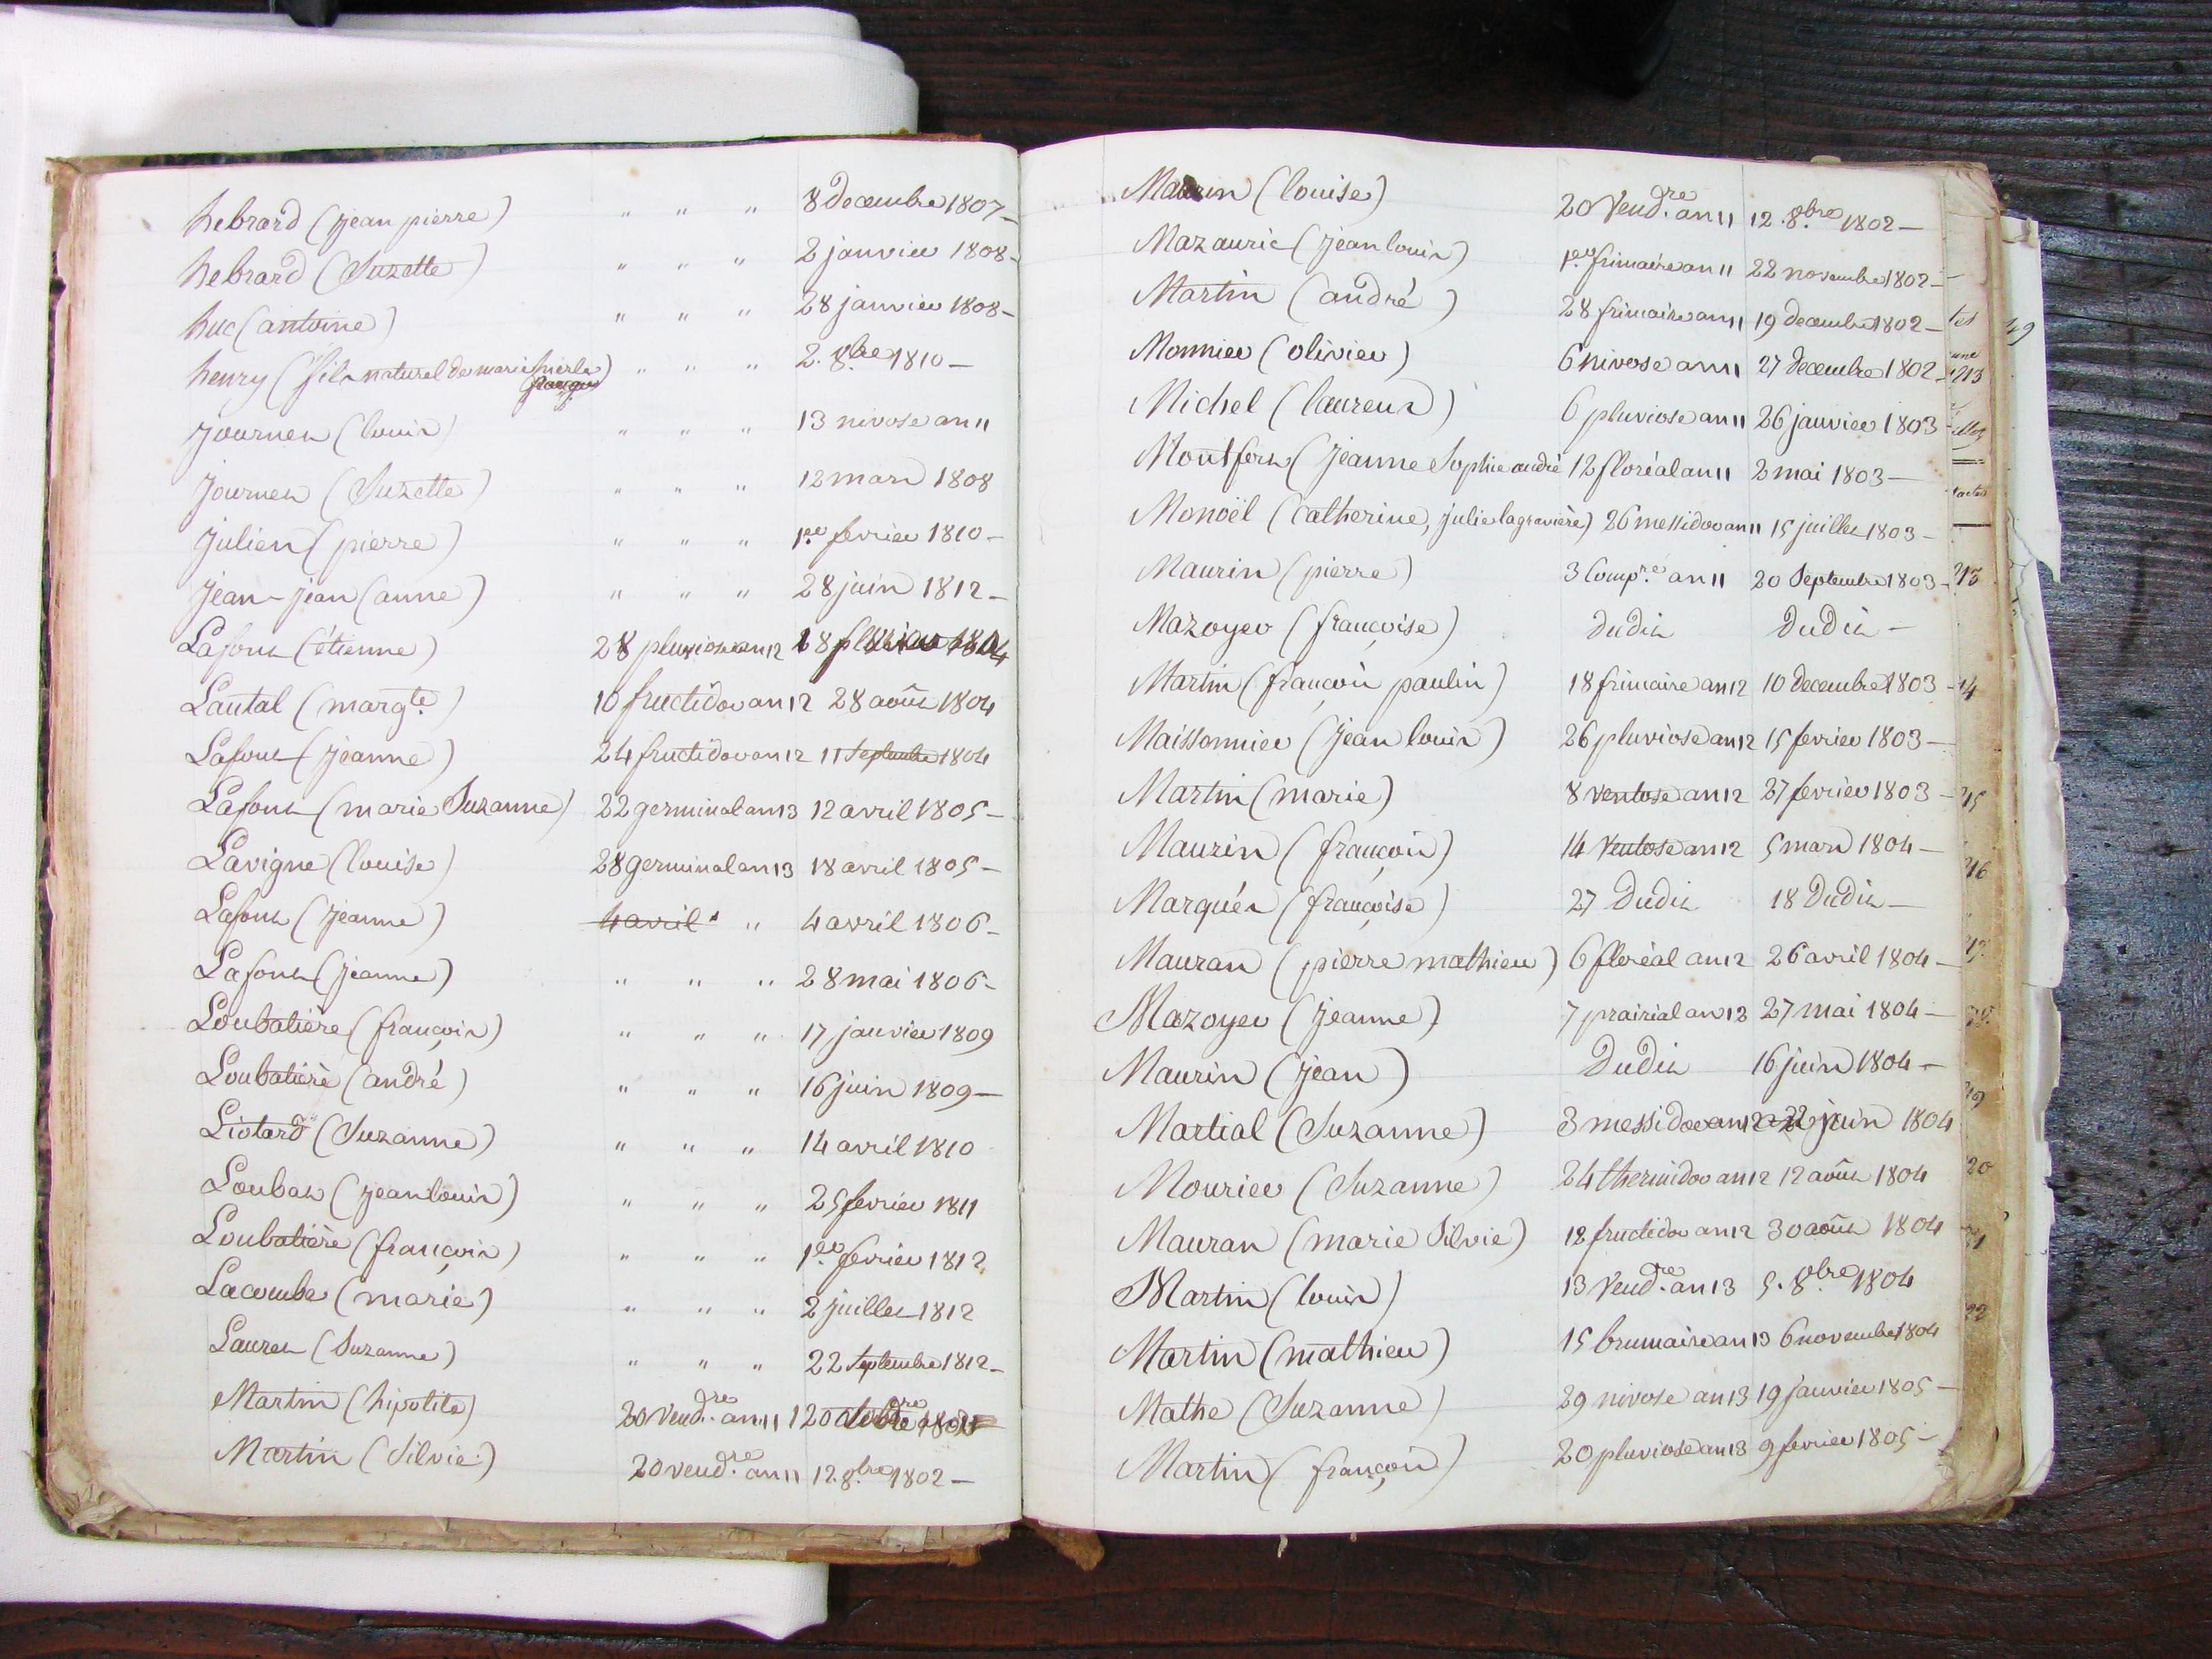 hebrard (jean pierre) " " " 8 decembre 1807 –
hebrard (Suzette) " " " 2 janvier 1808 –
huc (antoine) " " " 28 janvier 1808 –
henry (fils naturel de marie hierle) " " " 2. 8.bre 1810 –
journet (louis) " " " 13 nivose an 11
journet (Suzette) " " " 12 mars 1808
julien (pierre) " " " 1.er fevrier 1810 –
jean-jean (anne) " " " 28 juin 1812 –
Lafont (étienne) 28 pluviose an 12 18 fevrier 1804
Lautal (marg.te) 10 fructidor an 12 28 août 1804
Lafont (jeanne) 24 fructidor an 12 11 Septembre 1804
Lafont (marie Suzanne) 22 germinal an 13 12 avril 1805 –
Lavigne (louise) 28 germinal an 13 18 avril 1805 –
Lafont (jeanne) 4 avril " " 4 avril 1806 –
Lafont (jeanne) " " " 28 mai 1806 –
Loubatière (françois) " " " 17 janvier 1809
Loubatière (andré) " " " 16 juin 1809 –
Liotard (Suzanne) " " " 14 avril 1810
Loubat (jean louis) " " " 25 fevrier 1811
Loubatière (françois) " " " 1.er fevrier 1812
Lacombe (marie) " " " 2 juillet 1812
Lauret (Suzanne) " " " 22 Septembre 1812 –
Martin (hipolite) 20 Vend.re an 11
Martin (Silvie) 20 vend.re an 11 12. 8.bre 1802 –
Maurin (louise) 20 Vend.re an 11 12. 8.bre 1802 –
Mazauric (jean louis) 1.er frimaire an 11 22 novembre 1802 –
Martin (andré) 28 frimaire an 11 19 decembre 1802 –
Monnier (olivier) 6 nivose an 11 27 decembre 1802 –
Michel (laurent) 6 pluviose an 11 26 janvier 1803
Montfort (jeanne Sophie andré 12 floréal an 11 2 mai 1803 –
Monoël (Catherine, julie lagravière) 26 messidor an 11 15 juillet 1803 –
Maurin (pierre) 3 Comp.re an 11 20 Septembre 1803 –
Mazoyer (françoise) dudit dudit –
Martin (françois paulin) 18 frimaire an 12 10 decembre 1803 –
Maissonnier (jean louis) 26 pluviose an 12 15 fevrier 1803 –
Martin (marie) 8 ventose an 12 27 fevrier 1803 –
Maurin (françois) 14 Ventose an 12 5 mars 1804 –
Marqués (françoise) 27 Dudit 18 Dudit –
Mauran (pierre mathieu) 6 floréal an 12 26 avril 1804 –
Mazoyer (jeanne) 7 prairial an 12 27 mai 1804 –
Maurin (jean) Dudit 16 juin 1804 –
Martial (Suzanne) 3 messidor an 12 22 juin 1804
Mourier (Suzanne) 24 thermidor an 12 12 août 1804
Mauran (marie Silvie) 12 fructidor an 12 30 août 1804
Martin (louis) 13 Vend.re an 13 5. 8.bre 1804
Martin (mathieu) 15 brumaire an 13 6 novembre 1804
Mathe (Suzanne) 29 nivose an 13 19 janvier 1805 –
Martin (françois) 20 pluviose an 13 9 fevrier 1805 –